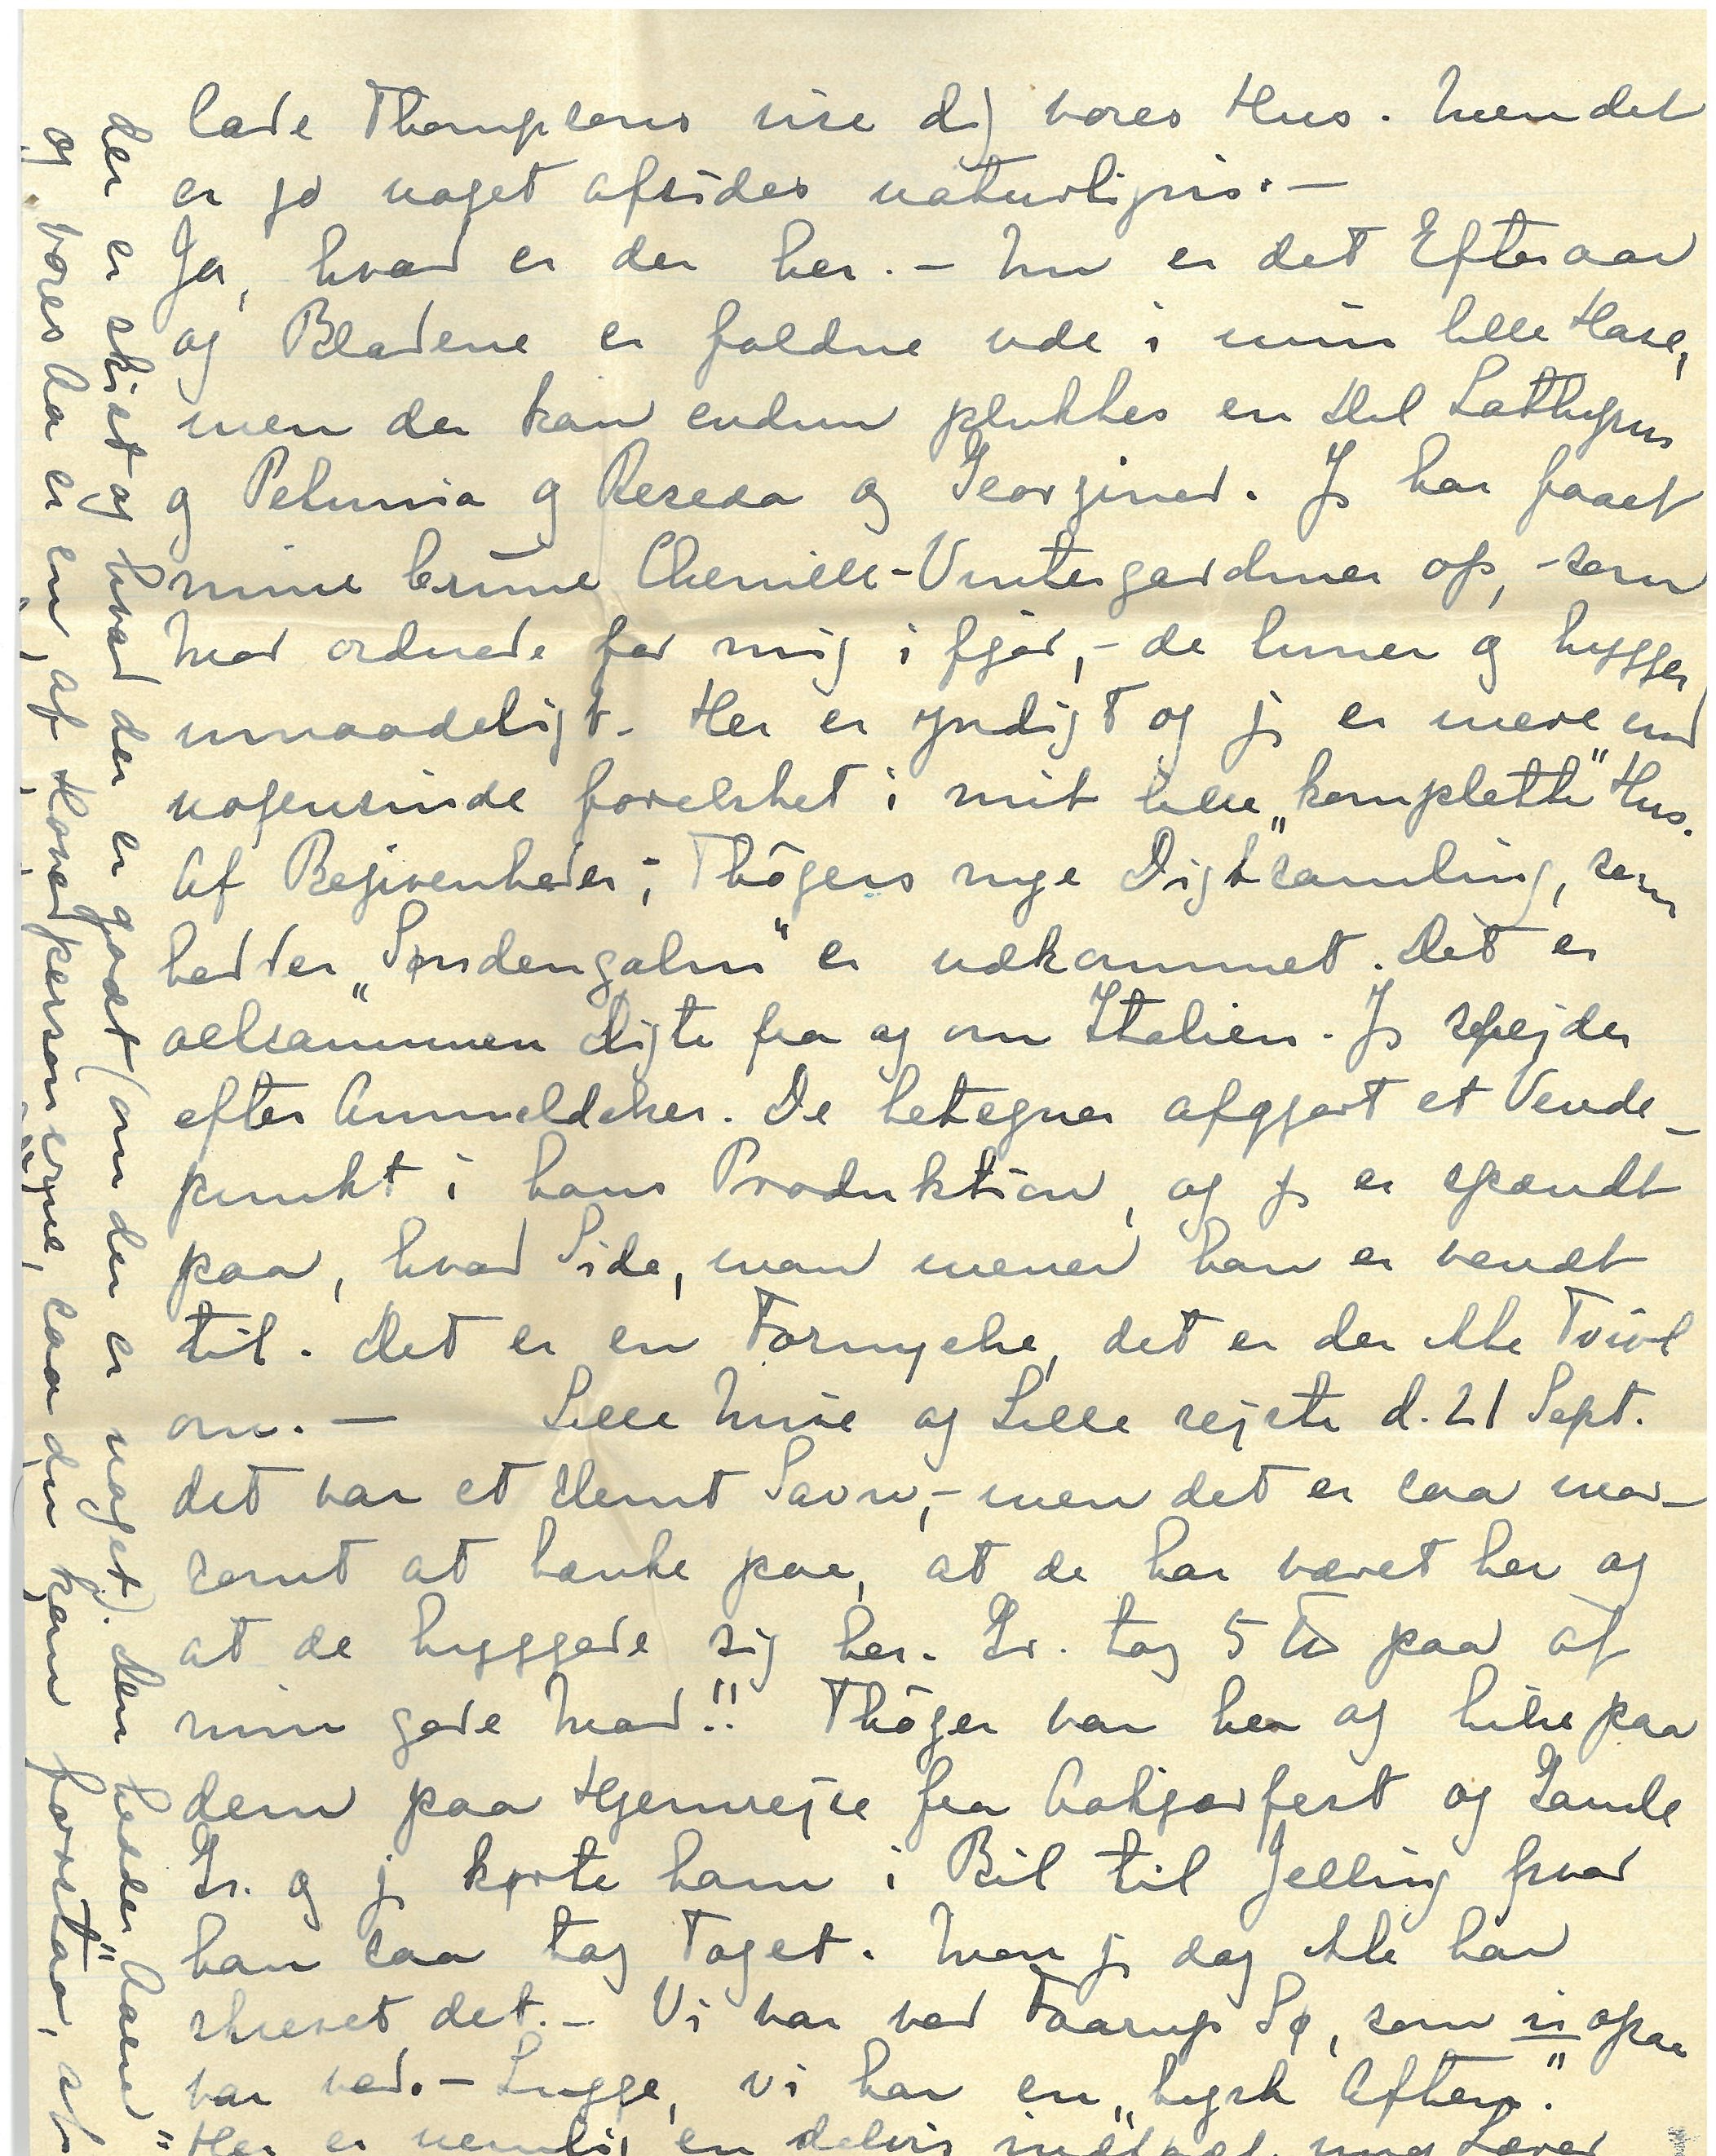 lade Thompsons vise dig vores Hus. Men det
er jo noget afsides naturligvis. –
Ja, hvad er der her. – Nu er det Efteraar
og Bladene er faldne ude i min lille Have,
men der kan endnu plukkes en Del Lathyrus
og Petunia og Reseda og Georginer. Jeg har faaet
mine brune Chenille-Vintergardiner op, – som
Mor ordnede for mig i fjor, – de luner og hygger
umaadeligt. Her er yndigt og jeg er mere end
nogensinde forelsket i mit lille „komplette" Hus.
Af Begivenheder; Thøgers nye Digtsamling, som
hedder „Søndengalm" er udkommet. Det er
allesammen Digte fra og om Italien. Jeg spejder
efter Anmeldelser. De betegner afgjort et Vende-
punkt i hans Produktion, og jeg er spændt
paa, hvad Side, man mener han er vendt
til. Det er en Fornyelse, det er der ikke Tvivl
om. – Lille Musse og Lille rejste d. 21 Sept.
det var et slemt Savn, – men det er saa mor-
somt at tænke paa, at de har været her og
at de hyggede sig her. Gr. tog 5 ℔ paa af
min gode Mad!! Thøger var her og hilse paa
dem paa Hjemrejse fra Aakjærfest og Gamle
Gr. og jeg kørte ham i Bil til Jelling hvor
han saa tog Toget. Mon jeg dog ikke har
skrevet det. – Vi var ved Faarup Sø, som vi ogsaa
var ved. – Lugge, vi har en „tysk Aften".
Her er nemlig en delvis
der er skidt og hvad der er godt (om der er noget). Den hedder „Aaen"
og vores Aa er en af Hovedpersonerne, saa du kan forstaa, at